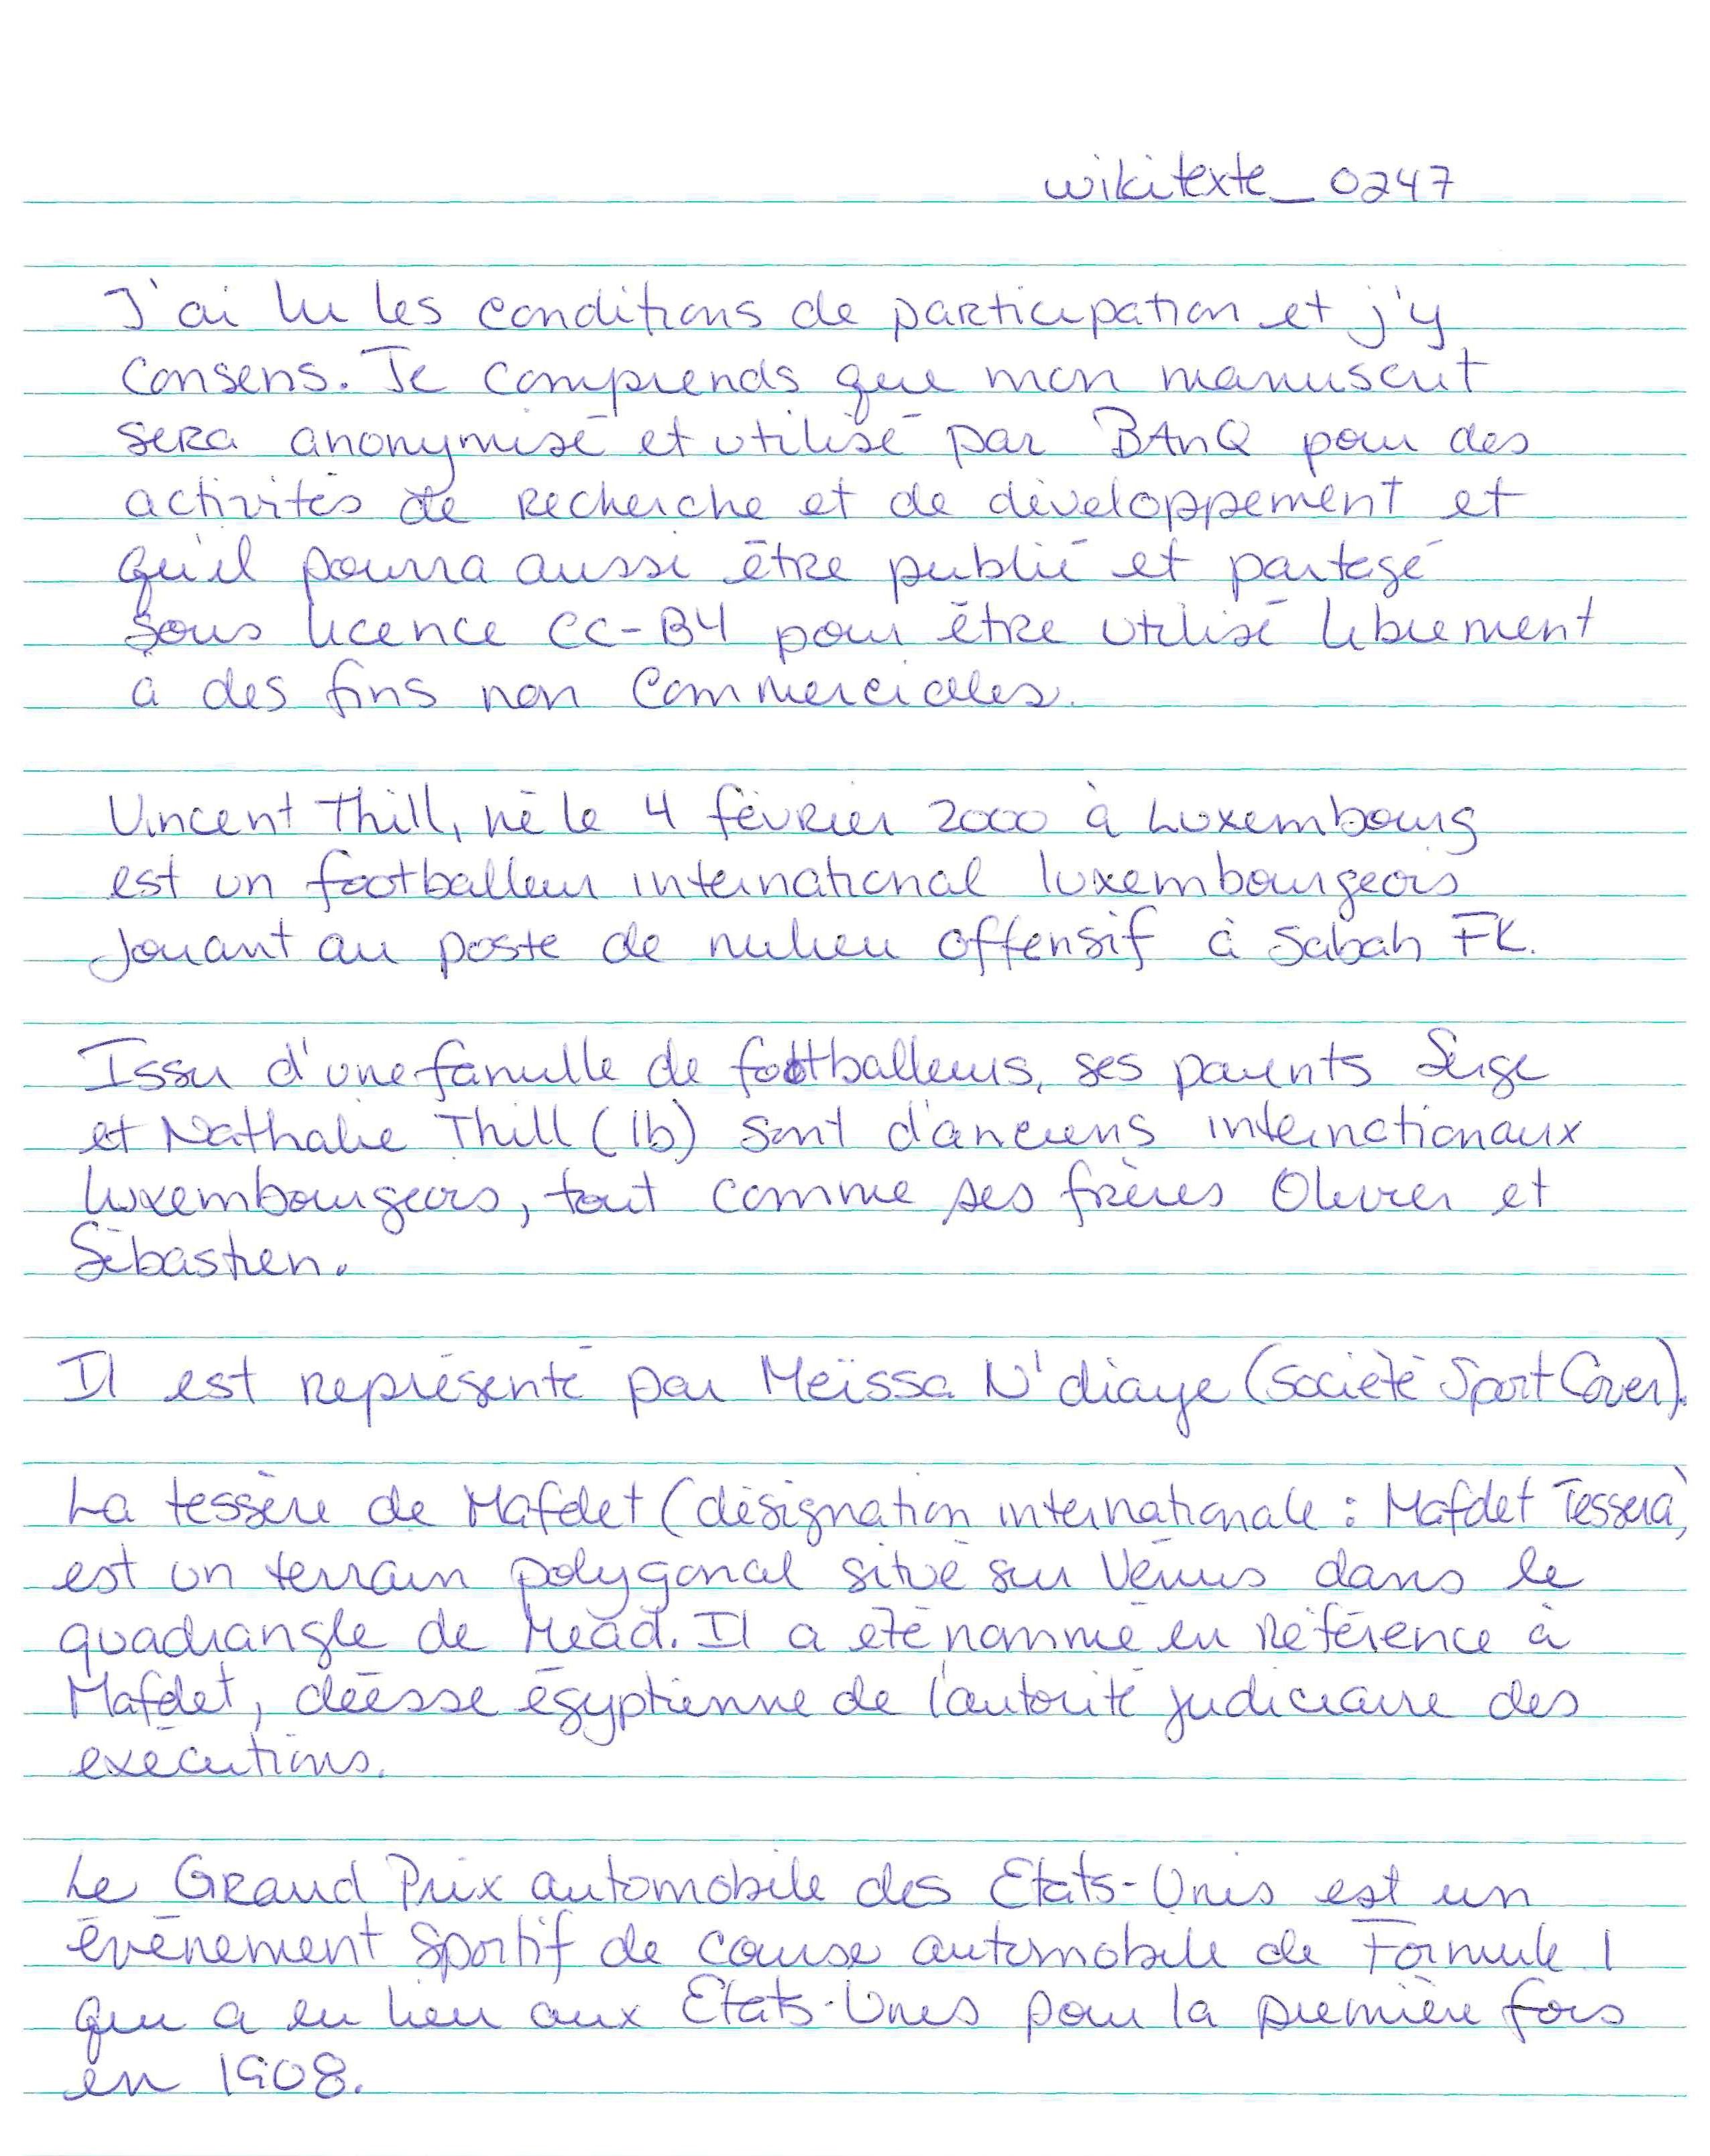 wikitexte_0247
J'ai lu les conditions de participation et j'y
consens. Je comprends que mon manuscrit
sera anonymisé et utilisé par BAnQ pour des
activités de recherche et de développement et
qu'il pourra aussi être publié et partagé
sous licence CC-BY pour être utilisé librement
à des fins non commerciales.
Vincent Thill, né le 4 février 2000 à Luxembourg
est un footballeur international luxembourgeois
jouant au poste de milieu offensif à Sabah FK.
Issu d'une famille de footballeurs, ses parents Serge
et Nathalie Thill (lb) sont d'anciens internationaux
luxembourgeois, tout comme ses frères Olivier et
Sébastien.
Il est représenté par Meïssa N'diaye (société Sport Cover).
La tessère de Mafdet (désignation internationale : Mafdet Tessera)
est un terrain polygonal situé sur Vénus dans le
quadrangle de Mead. Il a été nommé en référence à
Mafdet, déesse égyptienne de l'autorité judiciaire des
exécutions.
Le Grand Prix automobile des Etats-Unis est un
événement sportif de course automobile de Formule 1
qui a eu lieu aux Etats-Unis pour la première fois
en 1908.